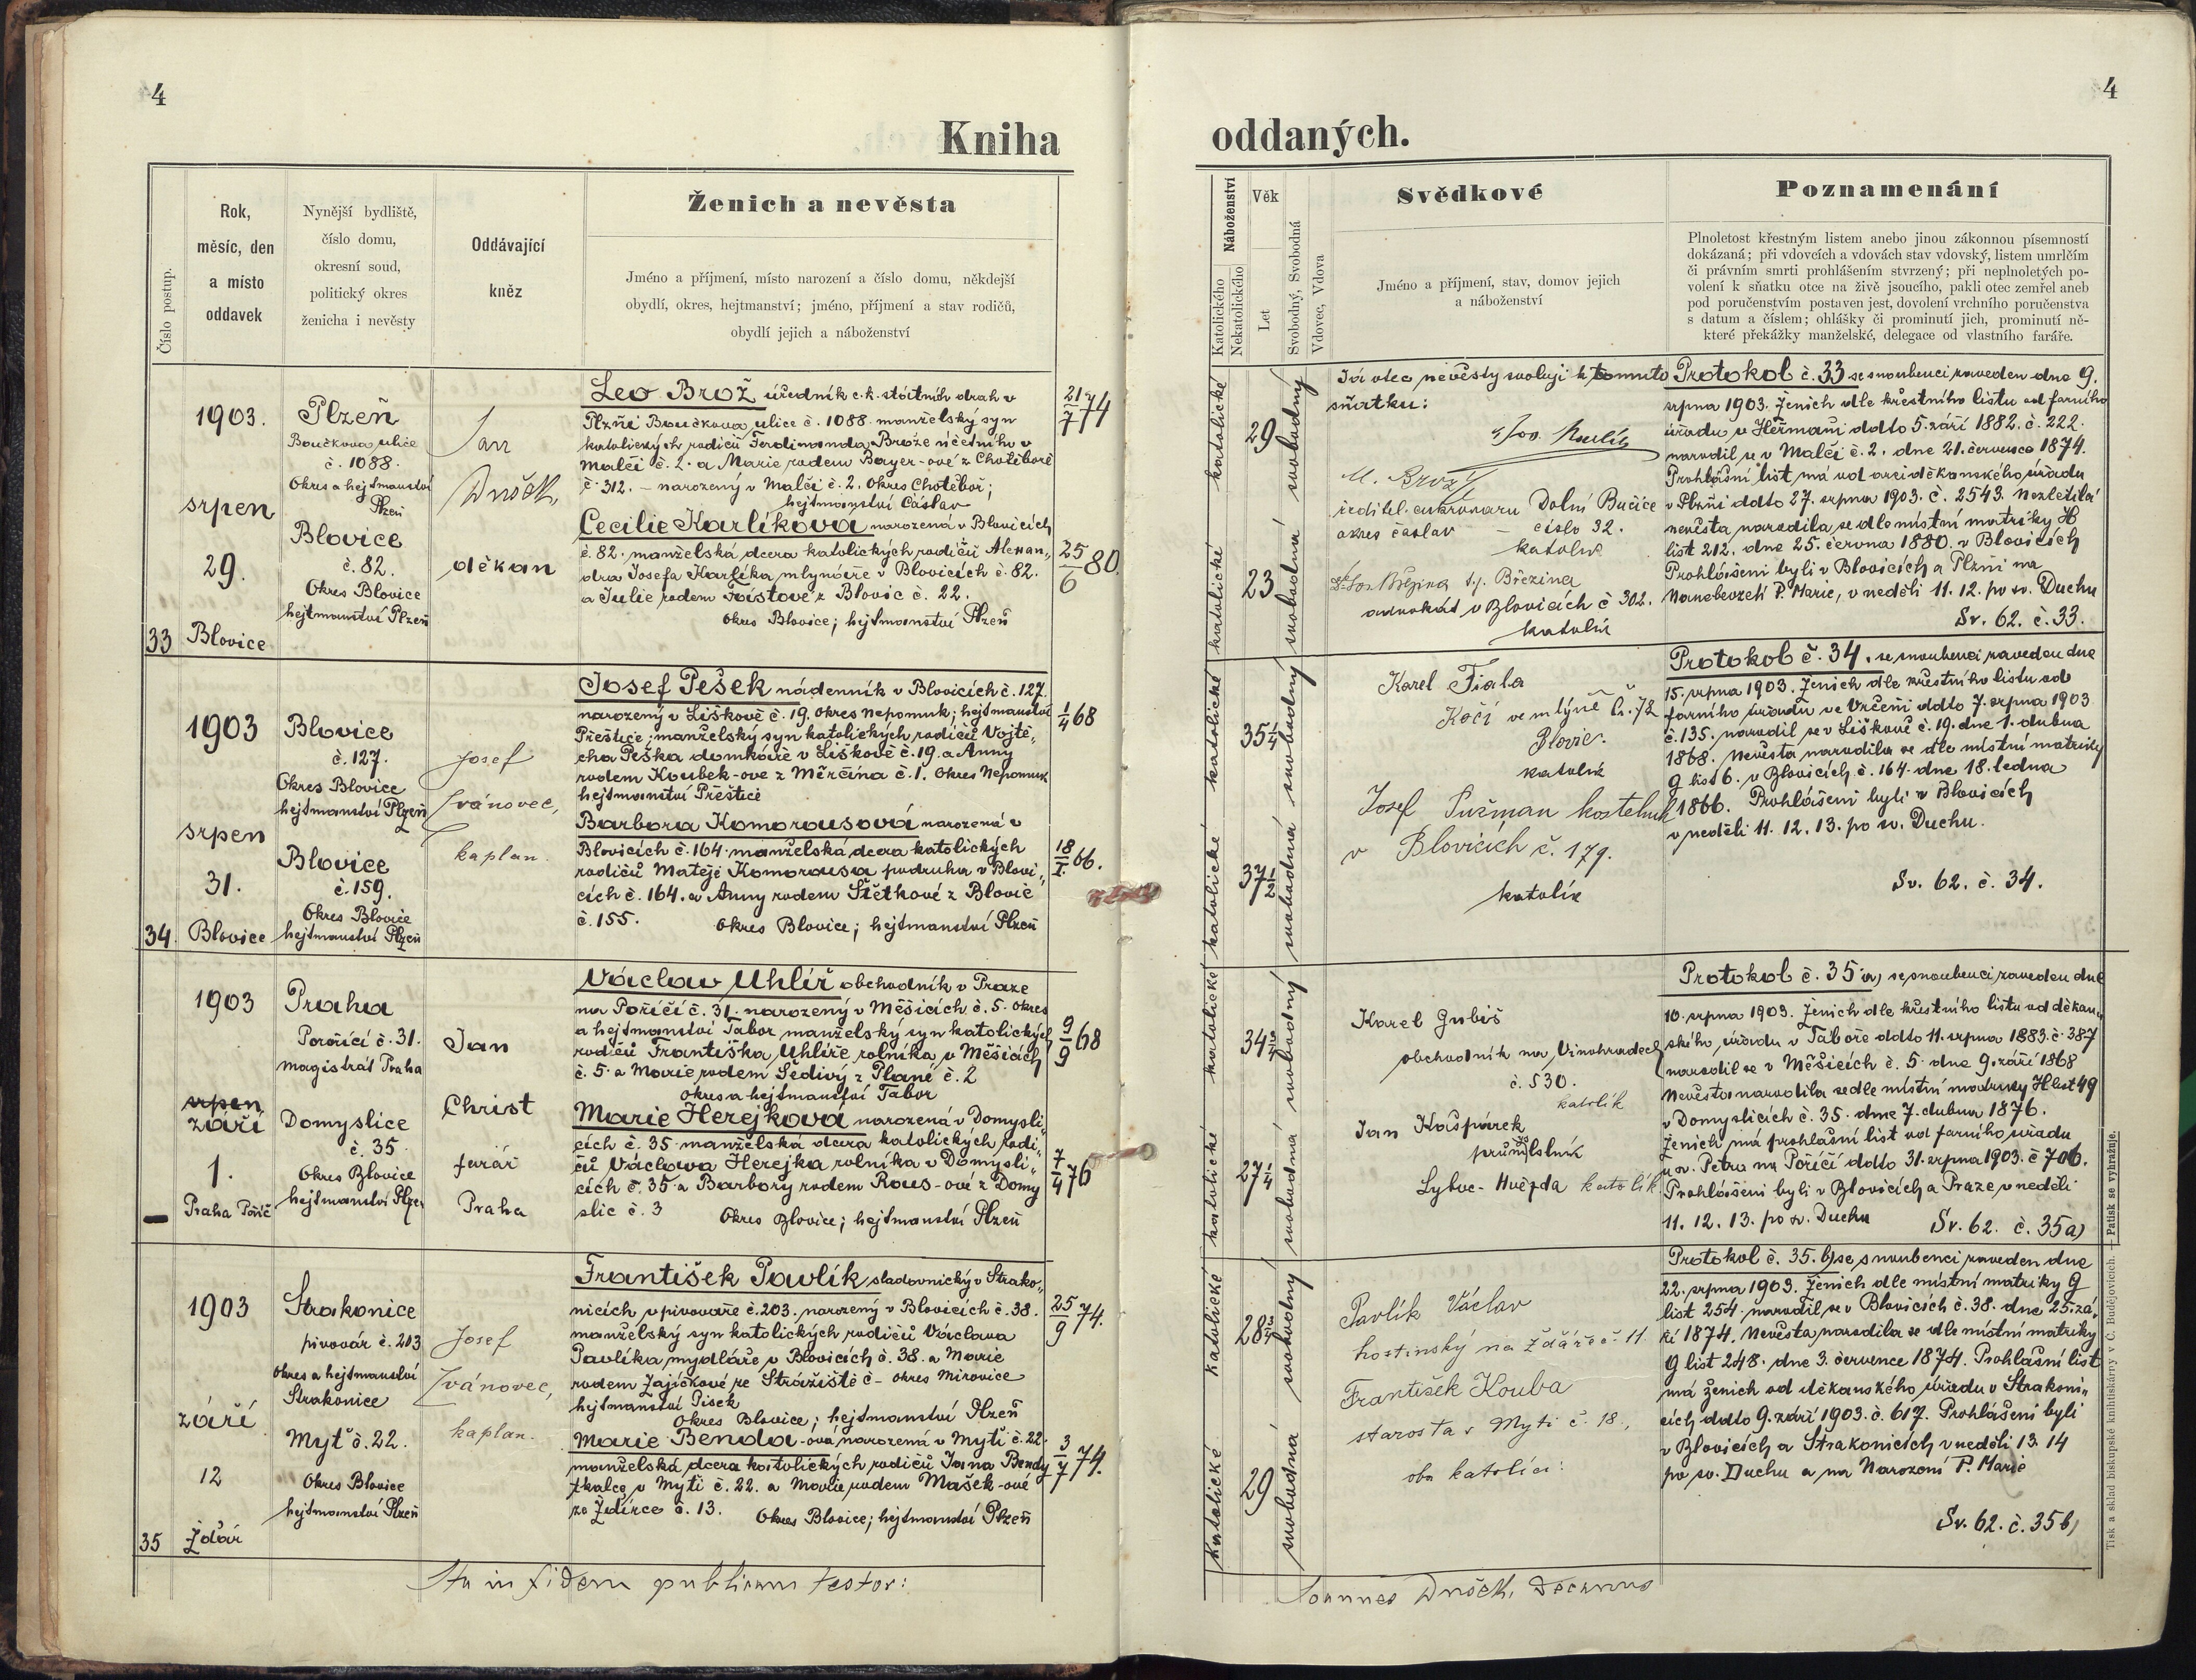 4
Kniha
Číslo postup.
Rok,
měsíc, den
a místo
oddavek
Nynější bydliště,
číslo domu,
okresní soud,
politický okres
ženicha i nevěsty
Oddávající
kněz
Ženich a nevěsta
Jméno a příjmení, místo narození a číslo domu, někdejší
obydlí, okres, hejtmanství; jméno, příjmení a stav rodičů,
obydlí jejich a náboženství
33
1903.
srpen
29.
Blovice
Plzeň
Boučkova ulice
č. 1088.
Okres a hejtmanství
Plzeň
Blovice
č. 82.
Okres Blovice
hejtmanství Plzeň
Jan
děkan
Leo Brož úředník c. k. státních drah v
Plzni Boučkova ulice č. 1088. manželský syn
katolických rodičů Ferdinanda Brože účetního v
Malči č. 2. a Marie rodem Bayer-ové z Chotěboře
č. 312. – narozený v Malči č. 2. Okres Chotěboř;
hejtmanství Čáslav
21/7 74
Cecilie Karlíkova narozená v Blovicích
č. 82. manželská dcera katolických rodičů Alexan„
dra Josefa Karlíka mlynáře v Blovicích č. 82.
a Julie rodem Foistové z Blovic č. 22.
Okres Blovice; hejtmanství Plzeň
25/6 80.
34.
1903
srpen
31.
Blovice
Blovice
č. 127.
Okres Blovice
hejtmanství Plzeň
Blovice
č. 159.
Okres Blovice
hejtmanství Plzeň
Josef
Ivánovec,
kaplan.
Josef Pešek nádenník v Blovicích č. 127.
narozený v Liškově č. 19. Okres Nepomuk; hejtmanství
Přeštice; manželský syn katolických rodičů Vojtě„
cha Peška domkáře v Liškově č. 19. a Anny
rodem Koubek-ove z Měrčína č. 1. Okres Nepomuk
hejtmanství Přeštice
1/4 68
Barbora Komorousová narozená v
Blovicích č. 164. manželská dcera katolických
rodičů Matěje Komorousa podruha v Blovi„
cích č. 164. a Anny rodem Štětkové z Blovic
č. 155. Okres Blovice; hejtmanství Plzeň
18/I. 66.
1903
srpen
září
1.
Praha Poříč
Praha
Poříčí č. 31.
magistrát Praha
Domyslice
č. 35
Okres Blovice
hejtmanství Plzeň
Jan
Christ
farář
Praha
Václav Uhlíř obchodník v Praze
na Poříčí č. 31. narozený v Měšicích č. 5. Okres
a hejtmanství Tábor manželský syn katolických
rodičů Františka Uhlíře rolníka v Měšicích
č. 5. a Marie rodem Šedivý z Plané č. 2
Okres a hejtmanství Tábor
9/9 68
Marie Herejkova narozená v Domysli„
cích č. 35 manželská dcera katolických rodi„
čů Václava Herejka rolníka v Domysli„
cích č. 35 a Barbory rodem Rous-ové z Domy
slic č. 3 Okres Blovice; hejtmanství Plzeň
7/4 76
35
1903
září
12
Žďár
Strakonice
pivovár č. 203
Okres a hejtmanství
Strakonice
Myť č. 22.
Okres Blovice
hejtmanství Plzeň
Josef
Ivánovec,
kaplan.
František Pavlík sladovnický v Strako„
nicích v pivovaře č. 203. narozený v Blovicích č. 38.
manželský syn katolických rodičů Václava
Pavlíka mydláře v Blovicích č. 38. a Marie
rodem Zajíčkové ze Strážiště č – okres Mirovice
hejtmanství Písek
Okres Blovice; hejtmanství Plzeň
25/9 74.
Marie Benda-ová narozená v Myti č. 22.
manželská dcera katolických rodičů Jana Bendy
tkalce v Myti č. 22. a Marie rodem Mašek-ové
ze Ždírce č. 13. Okres Blovice; hejtmanství Plzeň
3/7 74.
Ita in fidem publicam testor:
4
oddaných.
Náboženství
Katolického
Nekatolického
Věk
Let
Svobodný, Svobodná
Vdovec, Vdova
Svědkové
Jméno a příjmení, stav, domov jejich
a náboženství
Poznamenání
Plnoletost křestným listem anebo jinou zákonnou písemností
dokázaná; při vdovcích a vdovách stav vdovský, listem umrlčím
či právním smrti prohlášením stvrzený; při neplnoletých po-
volení k sňatku otce na živě jsoucího, pakli otec zemřel aneb
pod poručenstvím postaven jest, dovolení vrchního poručenstva
s datum a číslem; ohlášky či prominutí jich, prominutí ně-
které překážky manželské, delegace od vlastního faráře.
katolické
29
svobodný
katolické
23
svobodná
Já otec nevěsty svoluji k tomuto
sňatku:
M. Brož
ředitel cukrovaru Dolní Bučice
okres čáslav – číslo 32.
katolík
Březina
advokát v Blovicích č 302.
katolík
Protokol č. 33 se snoubenci zaveden dne 9.
srpna 1903. Ženich dle křestního listu od farního
úřadu v Heřmani ddto 5. září 1882. č. 222.
narodil se v Malči č. 2. dne 21. července 1874.
Prohlášní list má od arciděkanského úřadu
v Plzni ddto 27. srpna 1903. č. 2543. Nezletilá
nevěsta narodila se dle místní matriky H
list 212. dne 25. června 1880. v Blovicích
Prohlášeni byli v Blovicích a Plzni na
Nanebevzetí P. Marie, v neděli 11. 12. po sv. Duchu
Sv. 62. č. 33.
katolické
35 1/4
svobodný
katolické
37 1/2
svobodná
Karel Fiala
Kočí ve mlýně Č. 72
Blovic.
katolík
Josef Pužman kostelník
v Blovicích č. 179.
katolík
Protokol č. 34. se snoubenci zaveden dne
15. srpna 1903. Ženich dle křestního listu od
farního úřadu ve Vrčeni ddto 7. srpna 1903
č. 135. narodil se v Liškově č. 19. dne 1. dubna
1868. Nevěsta narodila se dle místní matriky
G list 6. v Blovicích č. 164. dne 18. ledna
1866. Prohlášeni byli v Blovicích
v neděli 11. 12. 13. po sv. Duchu.
Sv. 62. č. 34.
katolické
34 3/4
svobodný
katolické
27 1/4
svobodná
Karel Gubiš
obchodník na Vinohradech
č. 530.
katolík
Jan Kašpárek
Lyboc-Hvězda katolík
Protokol č. 35 a) se snoubenci zaveden dne
10. srpna 1903. Ženich dle křestního listu od děkan„
ského úřadu v Táboře ddto 11. srpna 1883. č. 387
narodil se v Měšicích č. 5. dne 9. září 1868
Nevěsta narodila se dle místní matriky H list 49
v Domyslicích č. 35. dne 7. dubna 1876.
Ženich má prohlašní list od farního úřadu
u sv. Petra na Poříčí ddto 31. srpna 1903. č 706.
Prohlášeni byli v Blovicích a Praze v neděli
11. 12. 13. po sv. Duchu Sv. 62. č. 35a)
katolické
28 3/4
svobodný
katolické
29
svobodná
Pavlík Václav
hostinský na Ždáře č. 11
František Kouba
starosta v Myti č. 18.,
oba katolíci:
Protokol č. 35. b) se snoubenci zaveden dne
22. srpna 1903. Ženich dle místní matriky G
list 254. narodil se v Blovicích č. 38. dne 25. zá„
ří 1874. Nevěsta narodila se dle místní matriky
G list 248. dne 3. července 1874. Prohlašní list
má ženich od děkanského úřadu v Strakoni„
cích ddto 9. září 1903. č. 617. Prohlášeni byli
v Blovicích a Strakonicích v neděli 13. 14
po sv. Duchu a na Narození P. Marie
Sv. 62. č. 35b)
Joannes Decanus
Tisk a sklad biskupské knihtiskárny v Č. Budějovicích. — Patisk se vyhražuje.